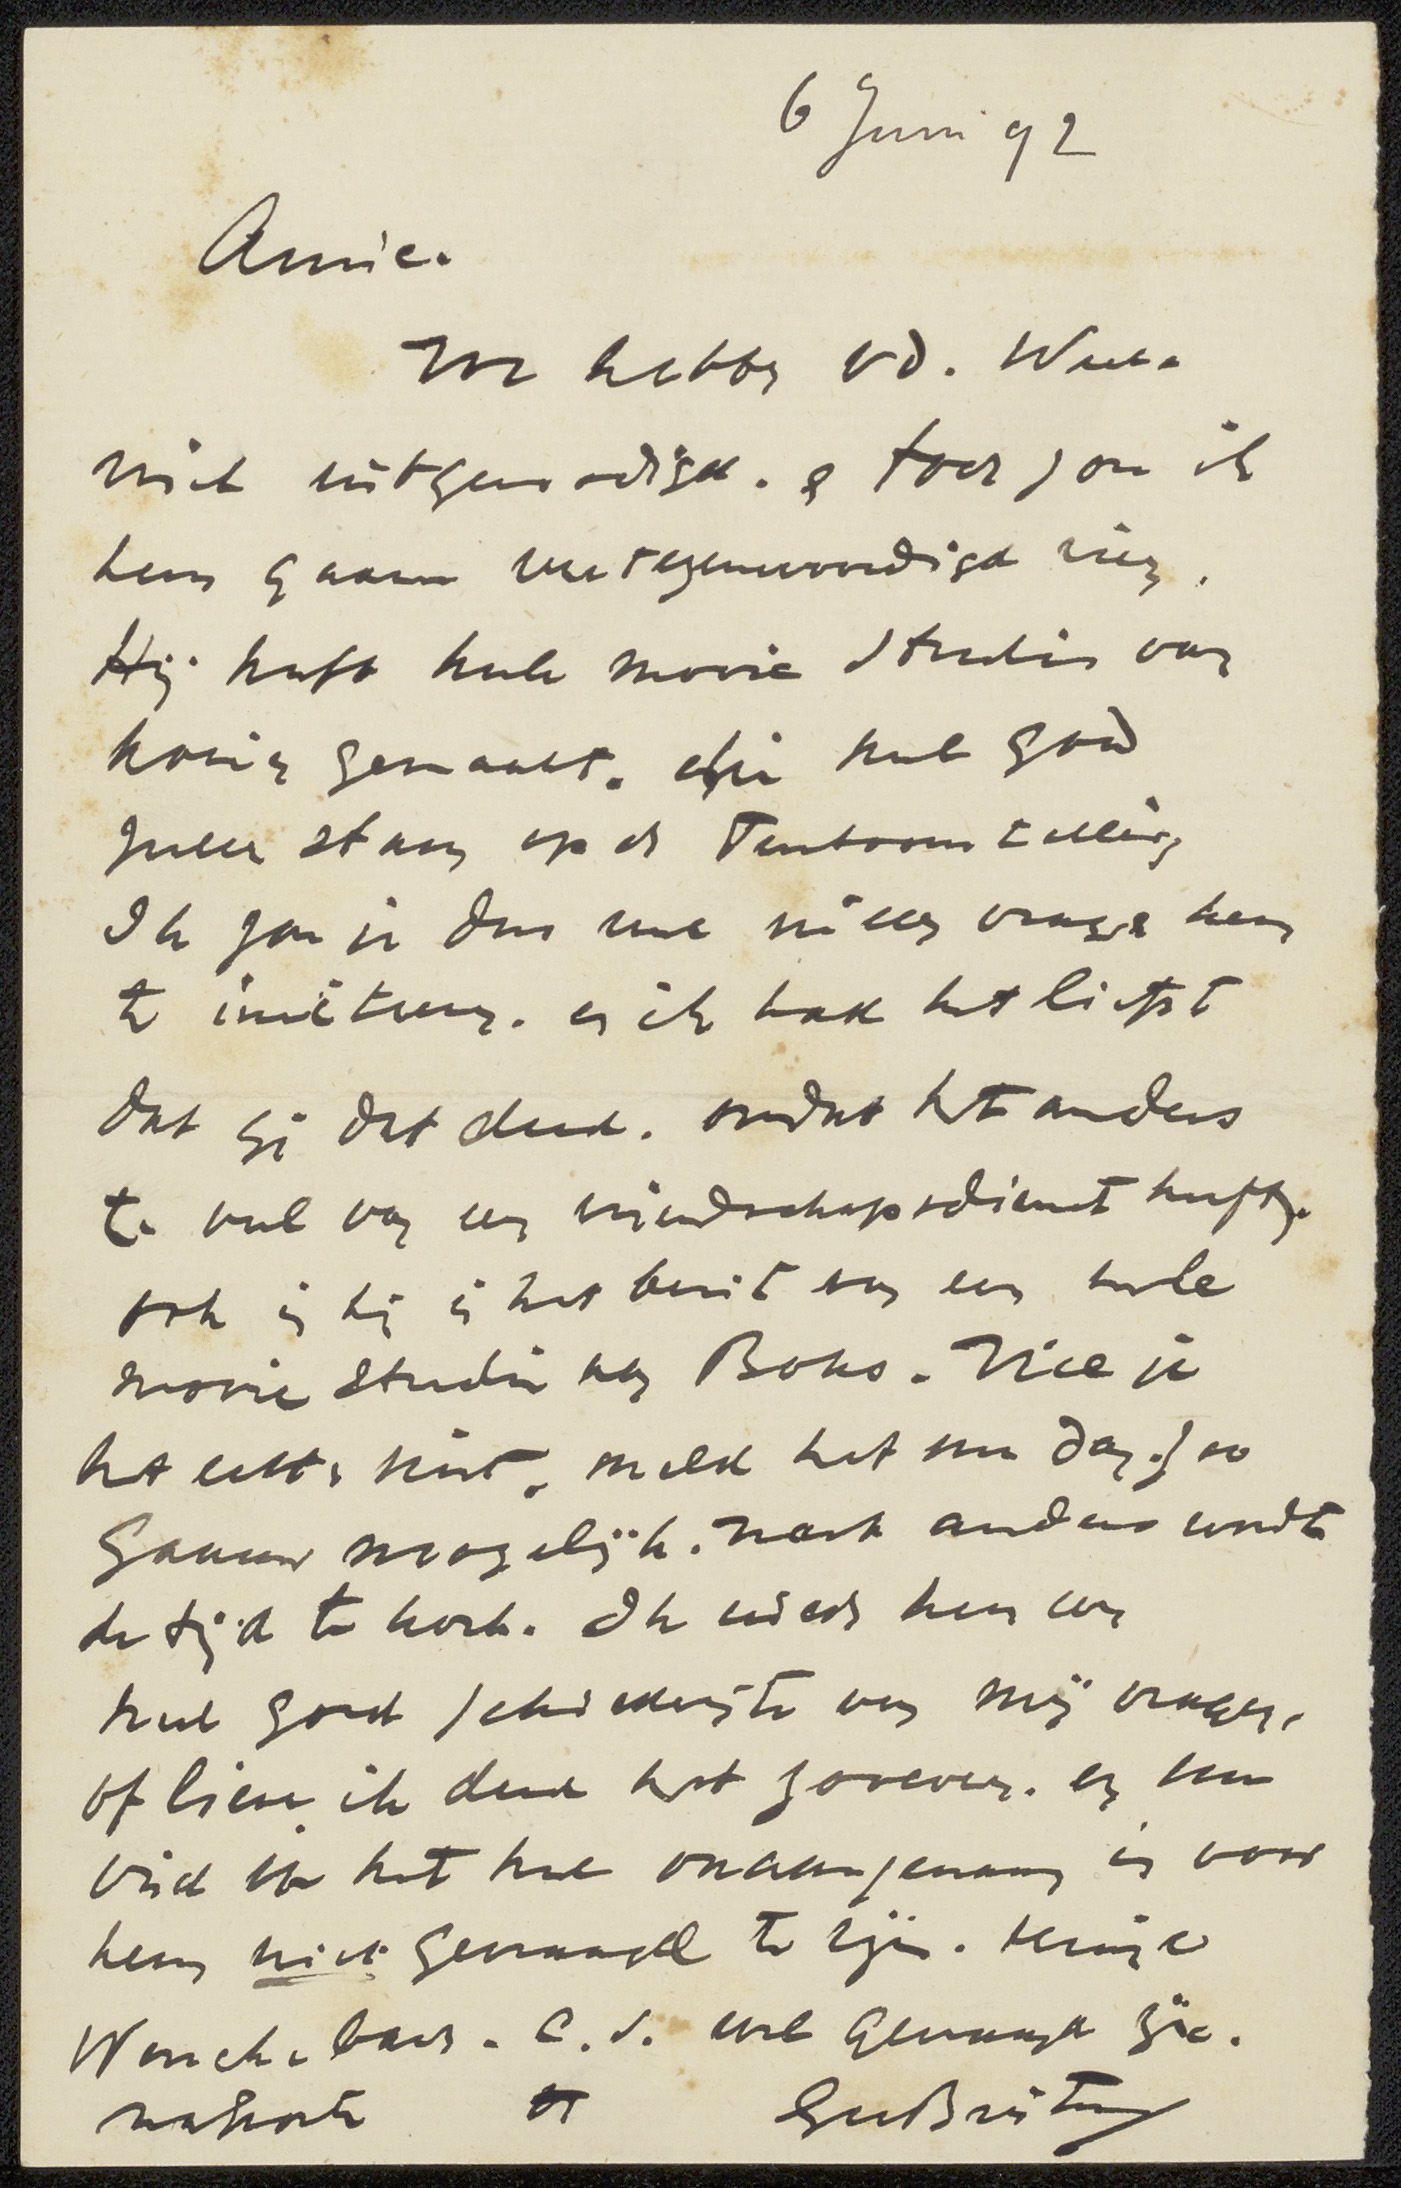 6 Juni 92
Annie.
We hebben vd. Weele
niet uitgenodigd. & toch zou ik
hem gaarne vertegenwoordigd zien.
Hij heeft heele mooie studies van
koeien gemaakt. die heel goed
zullen staan op de Tentoonstelling
Ik zou je dus wel willen vragen hem
te inviteeren. en ik had het liefst
dat gij dat deed. omdat het anders
te veel van een vriendschapsdienst heeft.
ook is hij in het bezit van een heele
mooie studie van Boks. Wil je
het echter niet, meld het me dan zoo
gauw mogelijk. want anders wordt
de tijd te kort. Ik zie dat hem een
heel goed schilderijtje van mij vragen.
of liever ik deed het zoo even. en nu
vind ik het heel onaangenaam is voor
hem niet gevraagd te zijn. terwijl
Wenckebach. e.d. wel gevraagd zijn.
GH Breitner